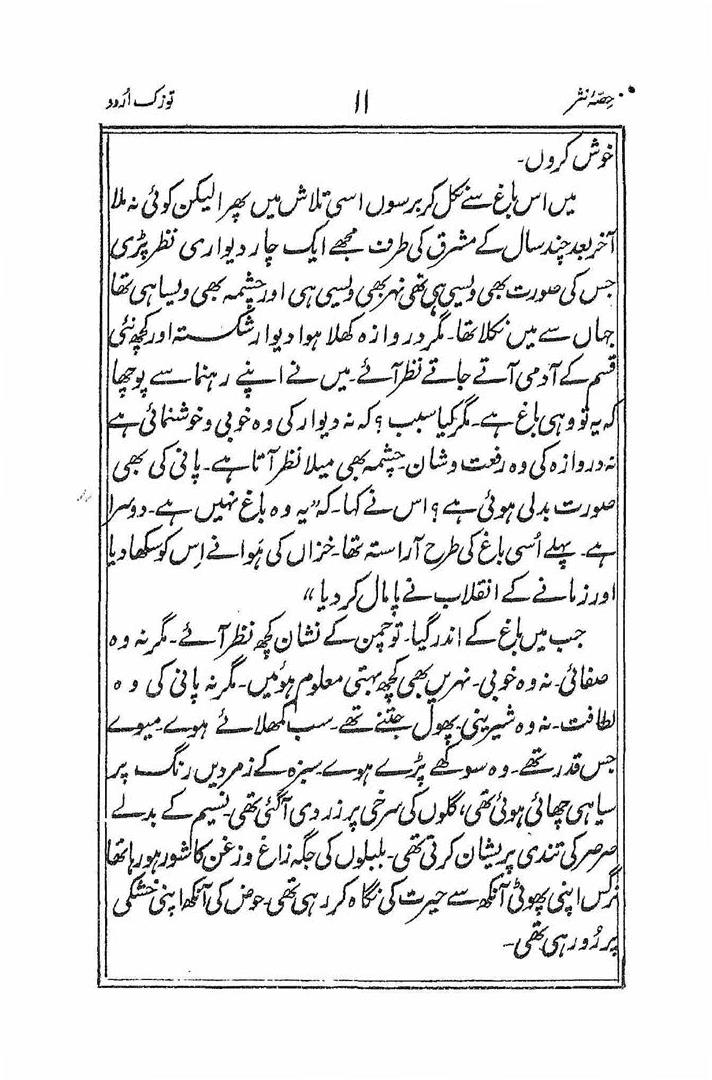 حصۂ نثر ۱۱ توزک اُردو
خوش کروں۔
میں اس باغ سے نکل کر برسوں اسی تلاش میں پھرا لیکن کوئی نہ ملا
آخر بعد چند سال کے مشرق کی طرف مجھے ایک چار دیواری نظر پڑی
جس کی صورت بھی ویسی ہی تھی نہر بھی ویسی ہی اور چشمہ بھی ویسا ہی تھا
جہاں سے میں نکلا تھا۔ مگر دروازہ کھلا ہوا دیوار شکستہ اور کچھ نئی
قسم کے آدمی آتے جاتے نظر آئے۔ میں نے اپنے رہنما سے پوچھا
کہ یہ تو وہی باغ ہے۔ مگر کیا سبب؟ کہ نہ دیوار کی وہ خوبی و خوشنمائی ہے
نہ دروازہ کی وہ رفعت و شان۔ چشمہ بھی میلا نظر آتا ہے۔ پانی کی بھی
صورت بدلی ہوئی ہے؟ اس نے کہا۔ کہ "یہ وہ باغ نہیں ہے۔ دوسرا
ہے۔ پہلے اُسی باغ کی طرح آراستہ تھا۔ خزاں کی ہَوا نے اِس کو سکھا دیا
اور زمانے کے انقلاب نے پامال کر دیا"
جب میں باغ کے اندر گیا۔ تو چمن کے نشان کچھ نظر آئے۔ مگر نہ وہ
صفائی۔ نہ وہ خوبی۔ نہریں بھی کچھ بہتی معلوم ہوئیں۔ مگر نہ پانی کی وہ
لطافت۔ نہ وہ شیرینی۔ پھول جتنے تھے۔ سب کمھلائے ہوے۔ میوے
جس قدر تھے۔ وہ سوکھے پڑے ہوے۔ سبزہ کے زمردیں رنگ پر
سیاہی چھائی ہوئی تھی، گلوں کی سرخی پر زردی آگئی تھی۔ نسیم کے بدلے
صرصر کی تندی پریشان کرتی تھی۔ بلبلوں کی جگہ زاغ و زغن کا شور ہو رہا تھا
نرگس اپنی پھوٹی آنکھ سے حیرت کی نگاہ کر رہی تھی۔ حوض کی آنکھ اپنی خشکی
پر رُو رہی تھی۔